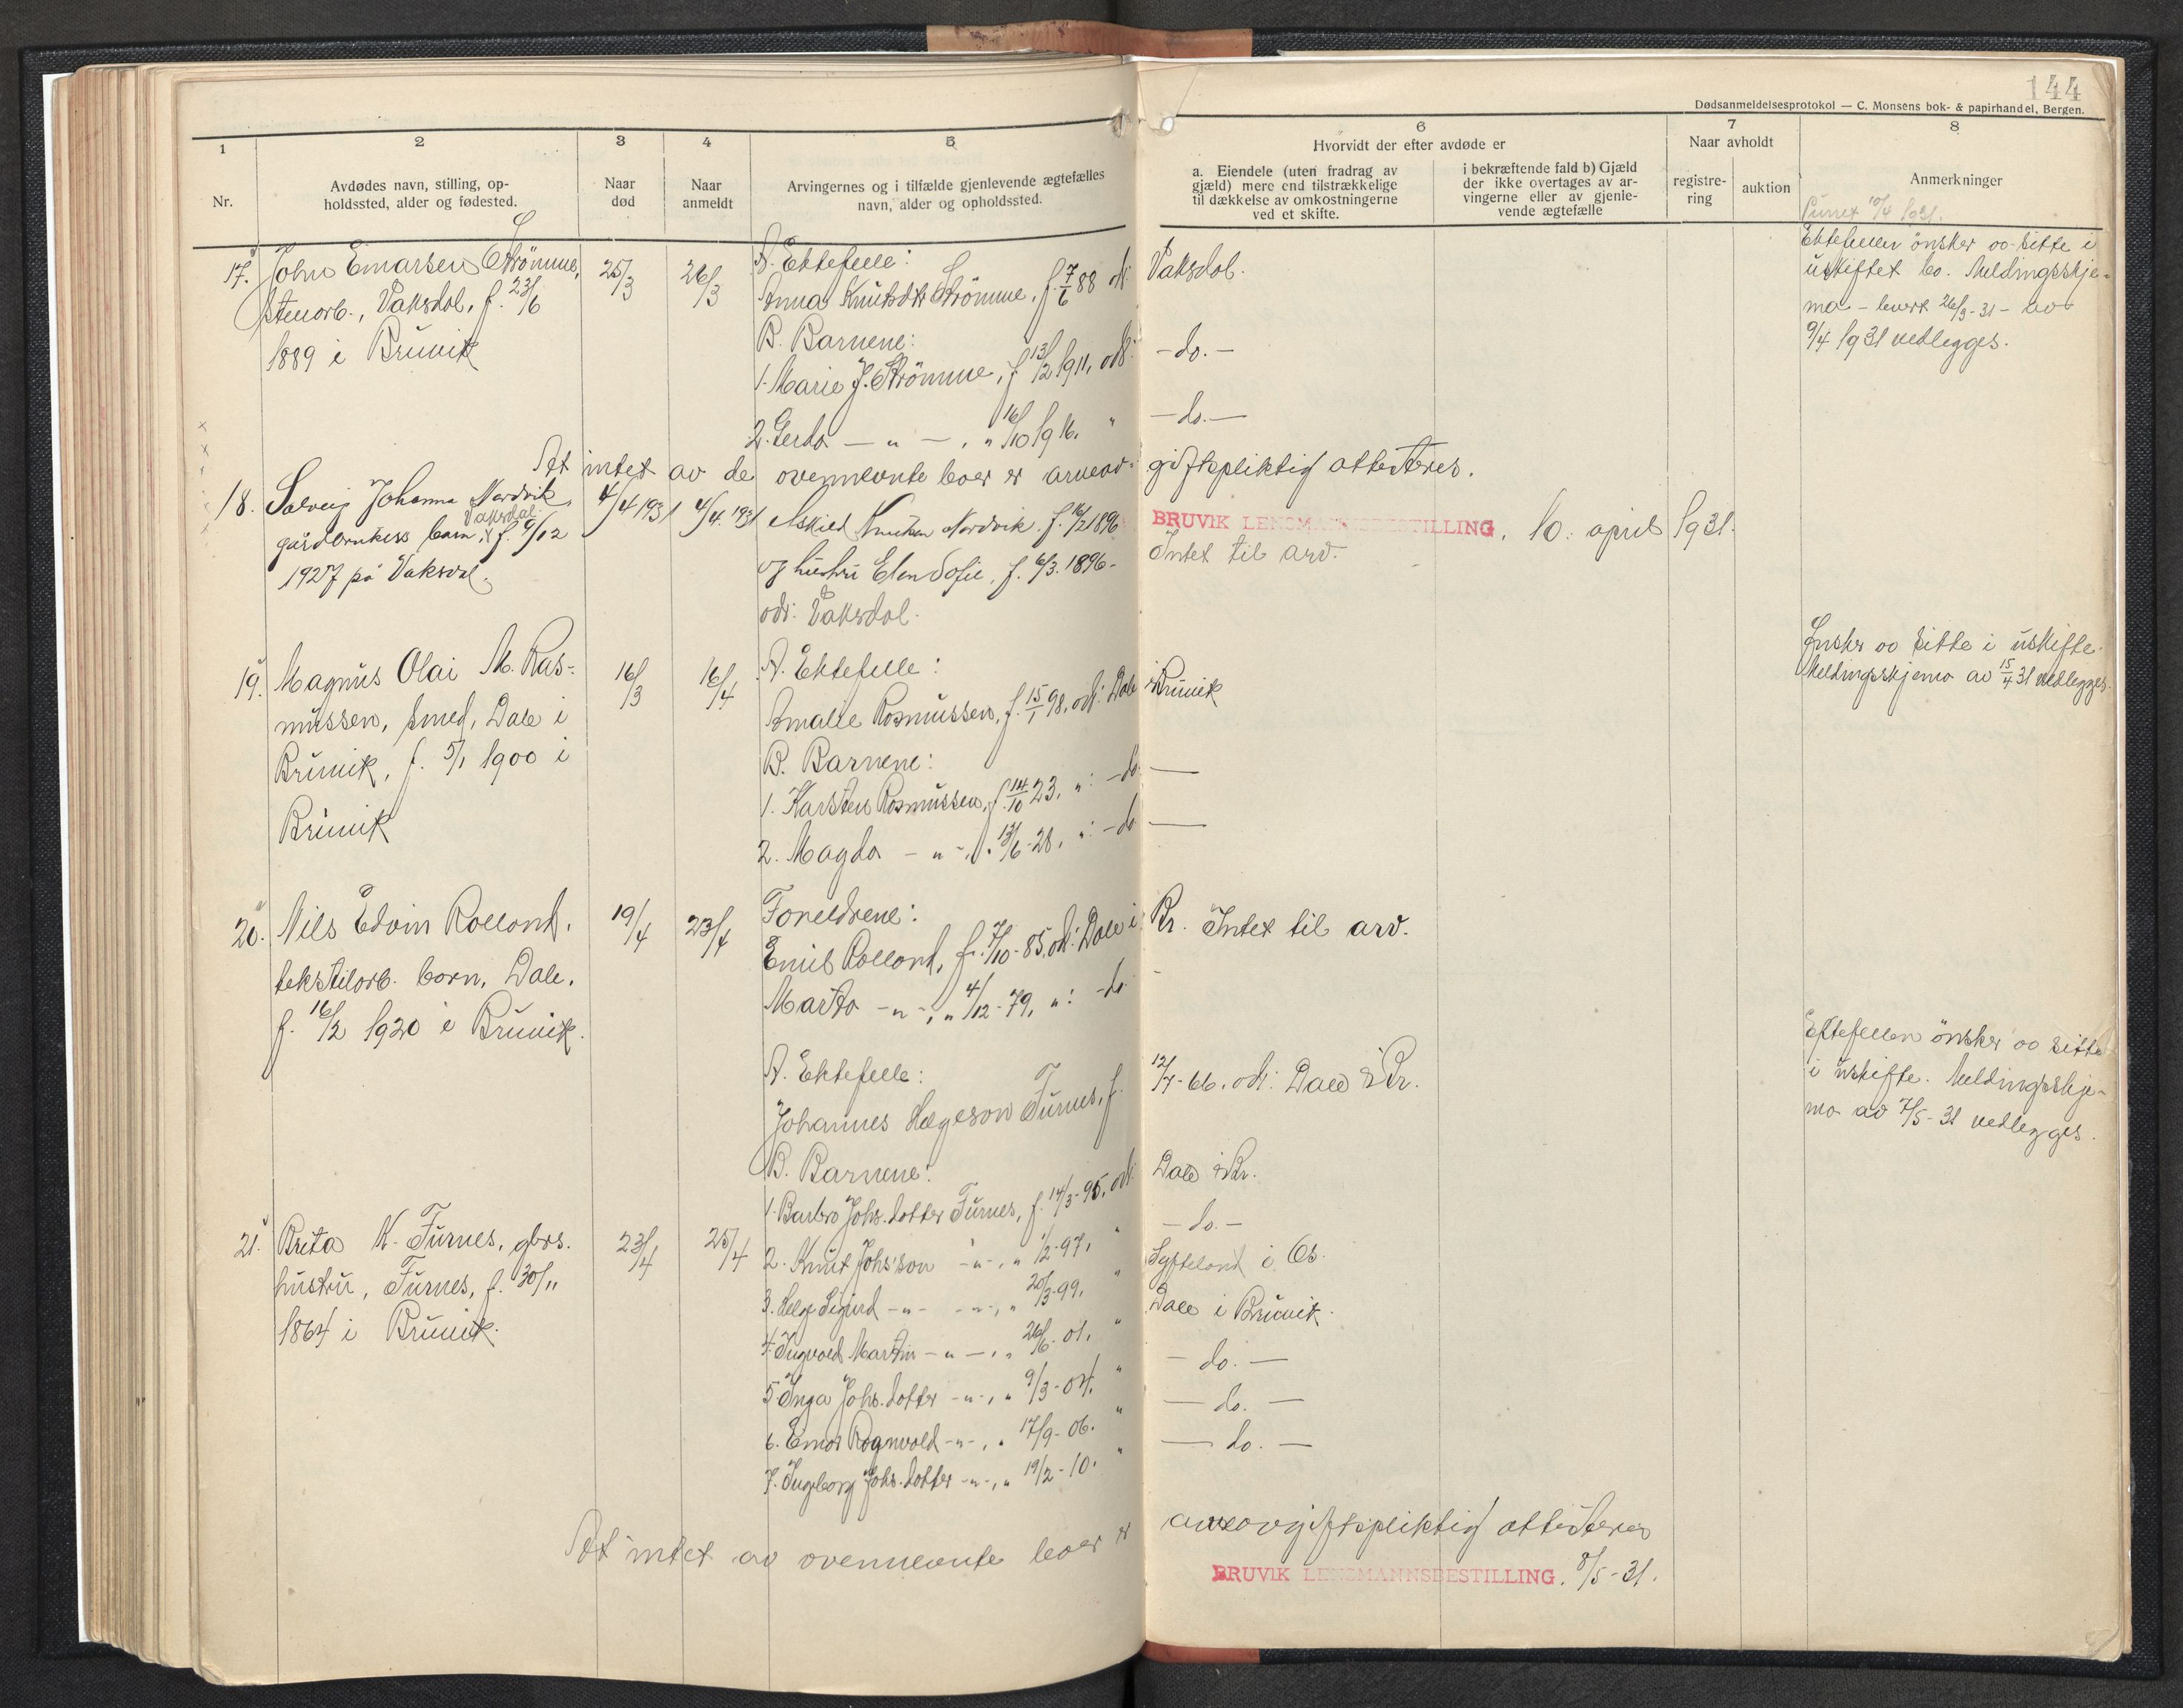 144
Dødsanmeldelsesprotokol — C. Monsens bok- & papirhandel, Bergen.
1
Nr.
2
Avdødes navn, stilling, op-
holdssted, alder og fødested.
3
Naar
død
4
Naar
anmeldt
5
Arvingernes og i tilfælde gjenlevende ægtefælles
navn, alder og opholdssted.
6
Hvorvidt der efter avdøde er
a. Eiendele (uten fradrag av
gjæld) mere end tilstrækkelige
til dækkelse av omkostningerne
ved et skifte.
i bekræftende fald b) Gjæld
der ikke overtages av ar-
vingerne eller av gjenle-
vende ægtefælle
7
Naar avholdt
registre-
ring
auktion
8
Anmerkninger
Purret 10/4 1931.
17. John Einarsen Strømme,
stenarb., Vaksdal, f. 23/6
1889 i Bruvik
25/3
26/3
A. Ektefelle:
Anna Knutsdtr Strømme, f. 7/6 88 ods: Vaksdal.
B. Barnene:
1. Marie J. Strømme, f. 13/2 1911, ods: -do.-
2. Gerda — " — , " 16/10 1916. " -do.-
Ektefellen ønsker å sitte i
uskiftet bo. Meldingsskje-
ma - levert 26/3-31 - av
9/4 1931 vedlegges.
At intet av de ovennevnte boer er arveav- giftspliktig attesteres.
BRUVIK LENSMANNSBESTILLING, 10. april 1931.
18. Solveig Johanna Nordvik,
gårdbrukers barn, Vaksdal f. 9/12
1927 på Vaksdal.
4/4 1931
4/4. 1931
Askild Knutsen Nordvik f. 16/2 1896
og hustru Elen Sofie, f. 6/3. 1896 -
ods: Vaksdal.
Intet til arv.
19. Magnus Olai M. Ras-
mussen, smed, Dale i
Bruvik, f. 5/1 1900 i
Bruvik
16/3
16/4
A. Ektefelle:
Amalie Rasmussen, f. 15/1 98, ods: Dale i Bruvik
B. Barnene:
1. Karsten Rasmussen, f. 14/10 23, " : -do-
2. Magda - " -, " 13/6-28, " : -do-
Ønsker å sitte i uskifte.
Meldingsskjema av 15/4 31 vedlegges.
20. Nils Edvin Rolland,
tekstilarb. barn, Dale,
f. 16/2 1920 i Bruvik.
19/4
23/4
Foreldrene:
Emil Rolland, f. 7/10-85, ods: Dale i Br. Intet til arv.
Marta - " -, " 4/12-79, " : -do-
21. Brita K. Furnes, gbrs.
hustru, Furnes, f. 30/11
1864 i Bruvik.
23/4
25/4
A. Ektefelle:
Johannes Helgeson Furnes, f. 12/7-66, ods: Dale i Br.
B. Barnene:
1. Barbro Johs.dotter Furnes, f. 14/3-95, ods: Dale i Br.
2. Knut Johs'son - " -, " 1/2-97, " -do.-
3. Helge Sigurd - " - - " -, " 20/3-99, " Syfteland i Os.
4. Ingvald Martin - " -, " 26/6-01, " Dale i Bruvik.
5. Inga Johs.dotter - " -, " 9/3-04, " -do.-
6. Einar Ragnvald - " -, " 17/9-06. " -do.-
7. Ingeborg Johs.dotter - " -, " 19/2-10. " -do.-
Ektefellen ønsker å sitte
i uskifte. Meldingsskje-
ma av 7/5-31 vedlegges.
At intet av ovennevnte boer er arveavgiftspliktig attesteres
BRUVIK LENSMANNSBESTILLING, 8/5-31.